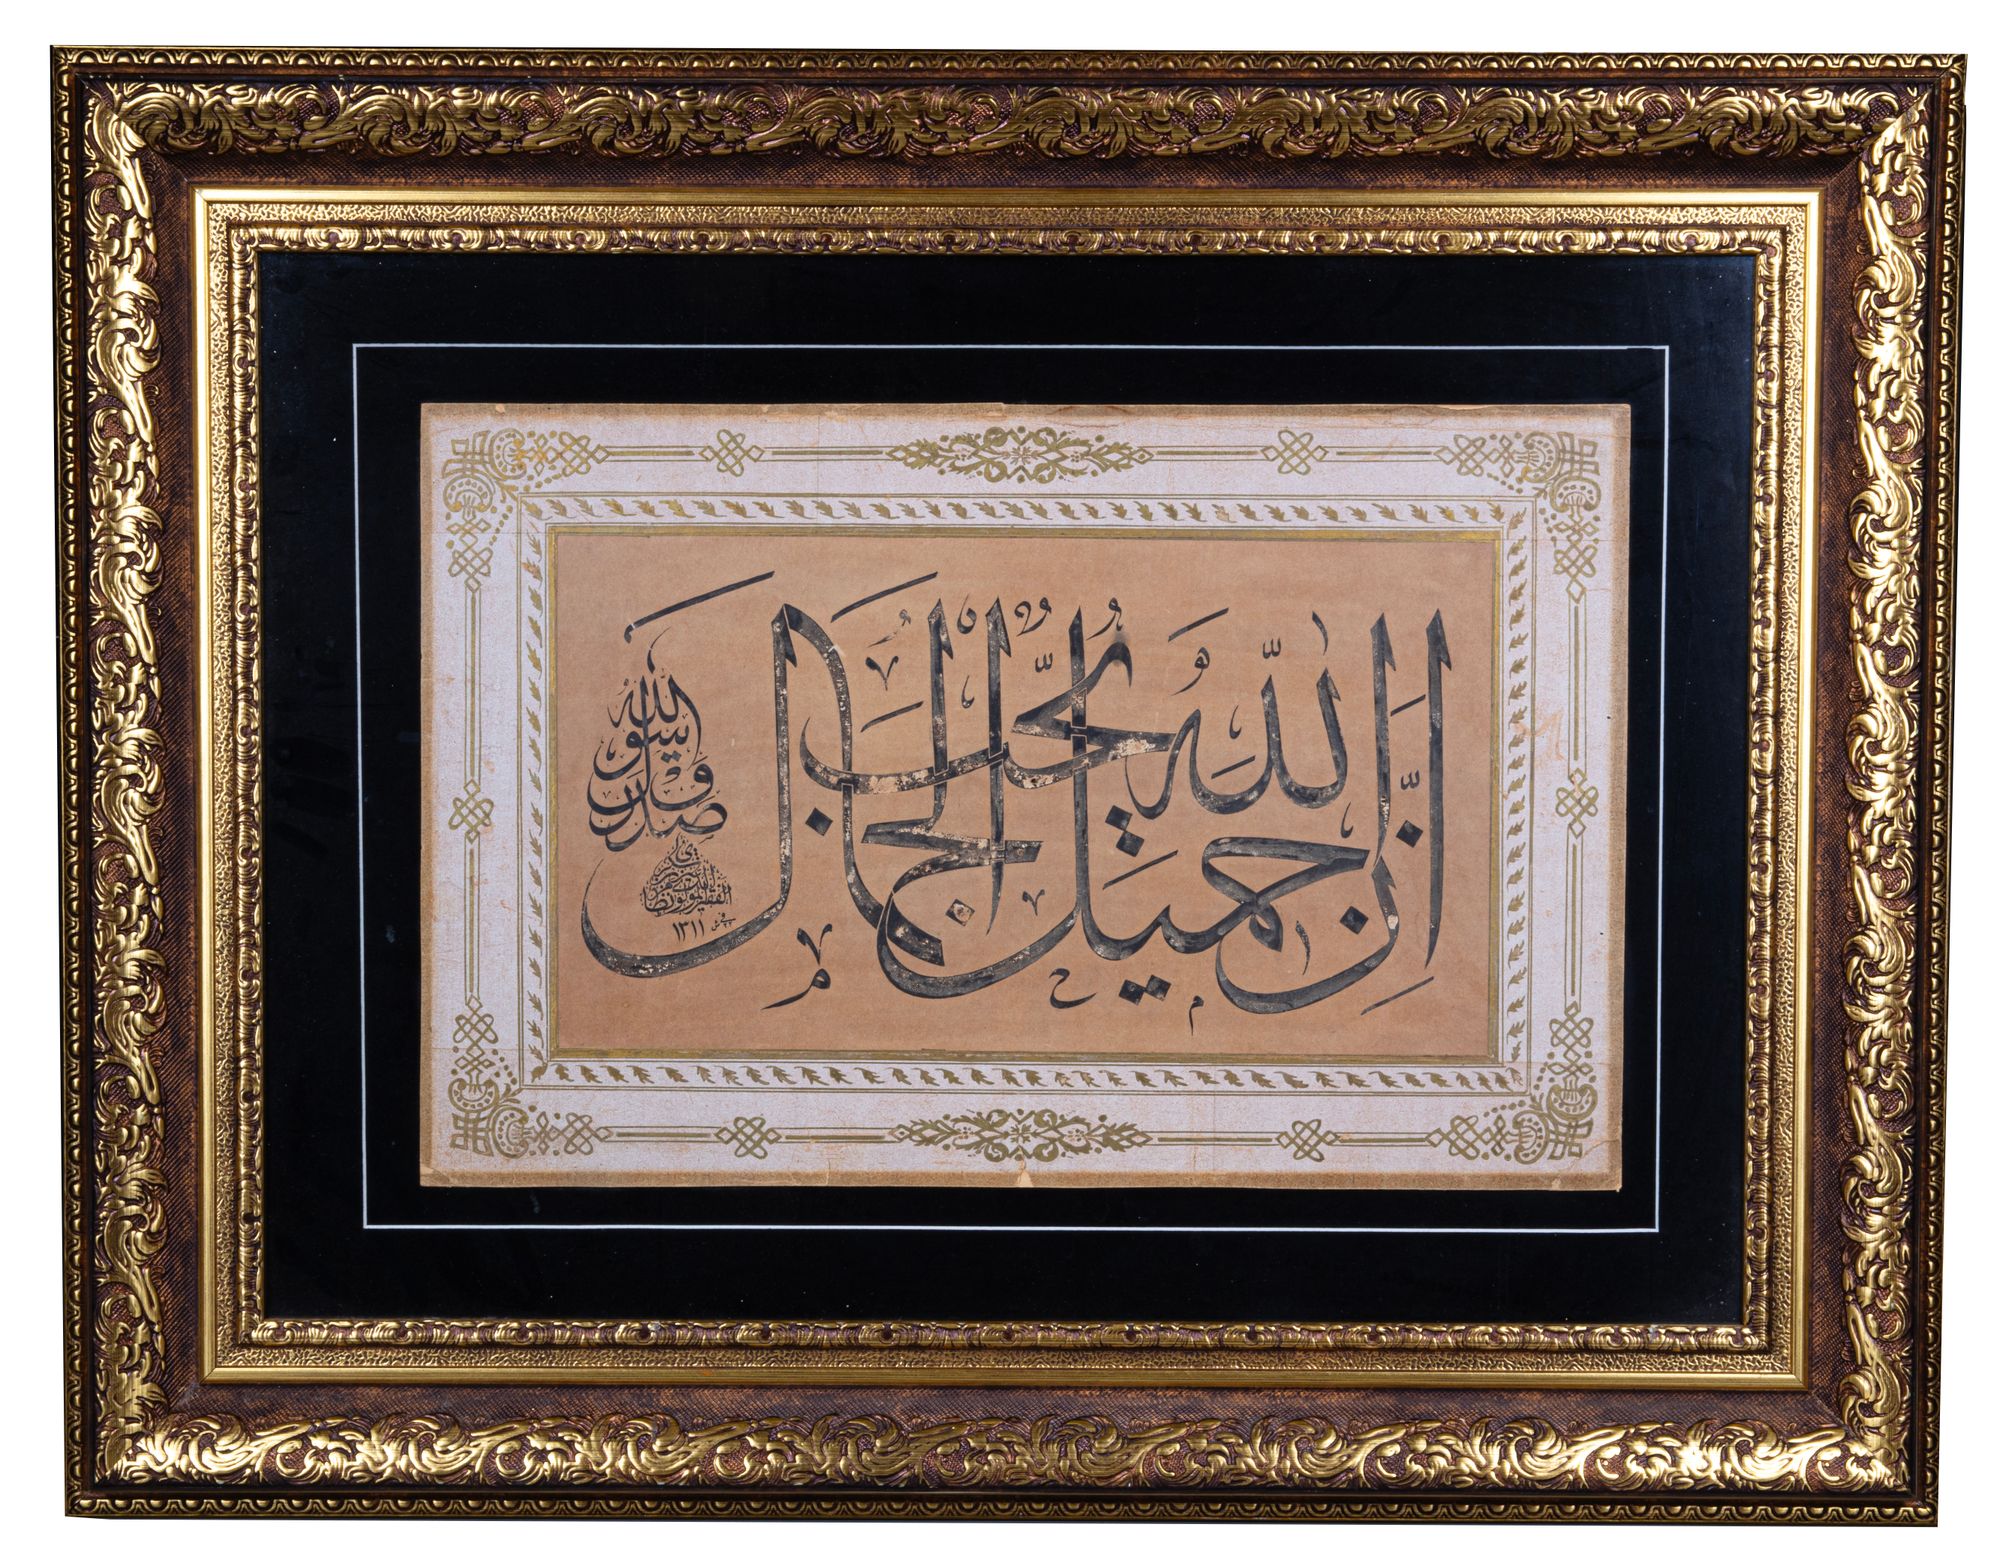 إن الله جميل يحب الجمال
صدق رسول الله
١٣١١